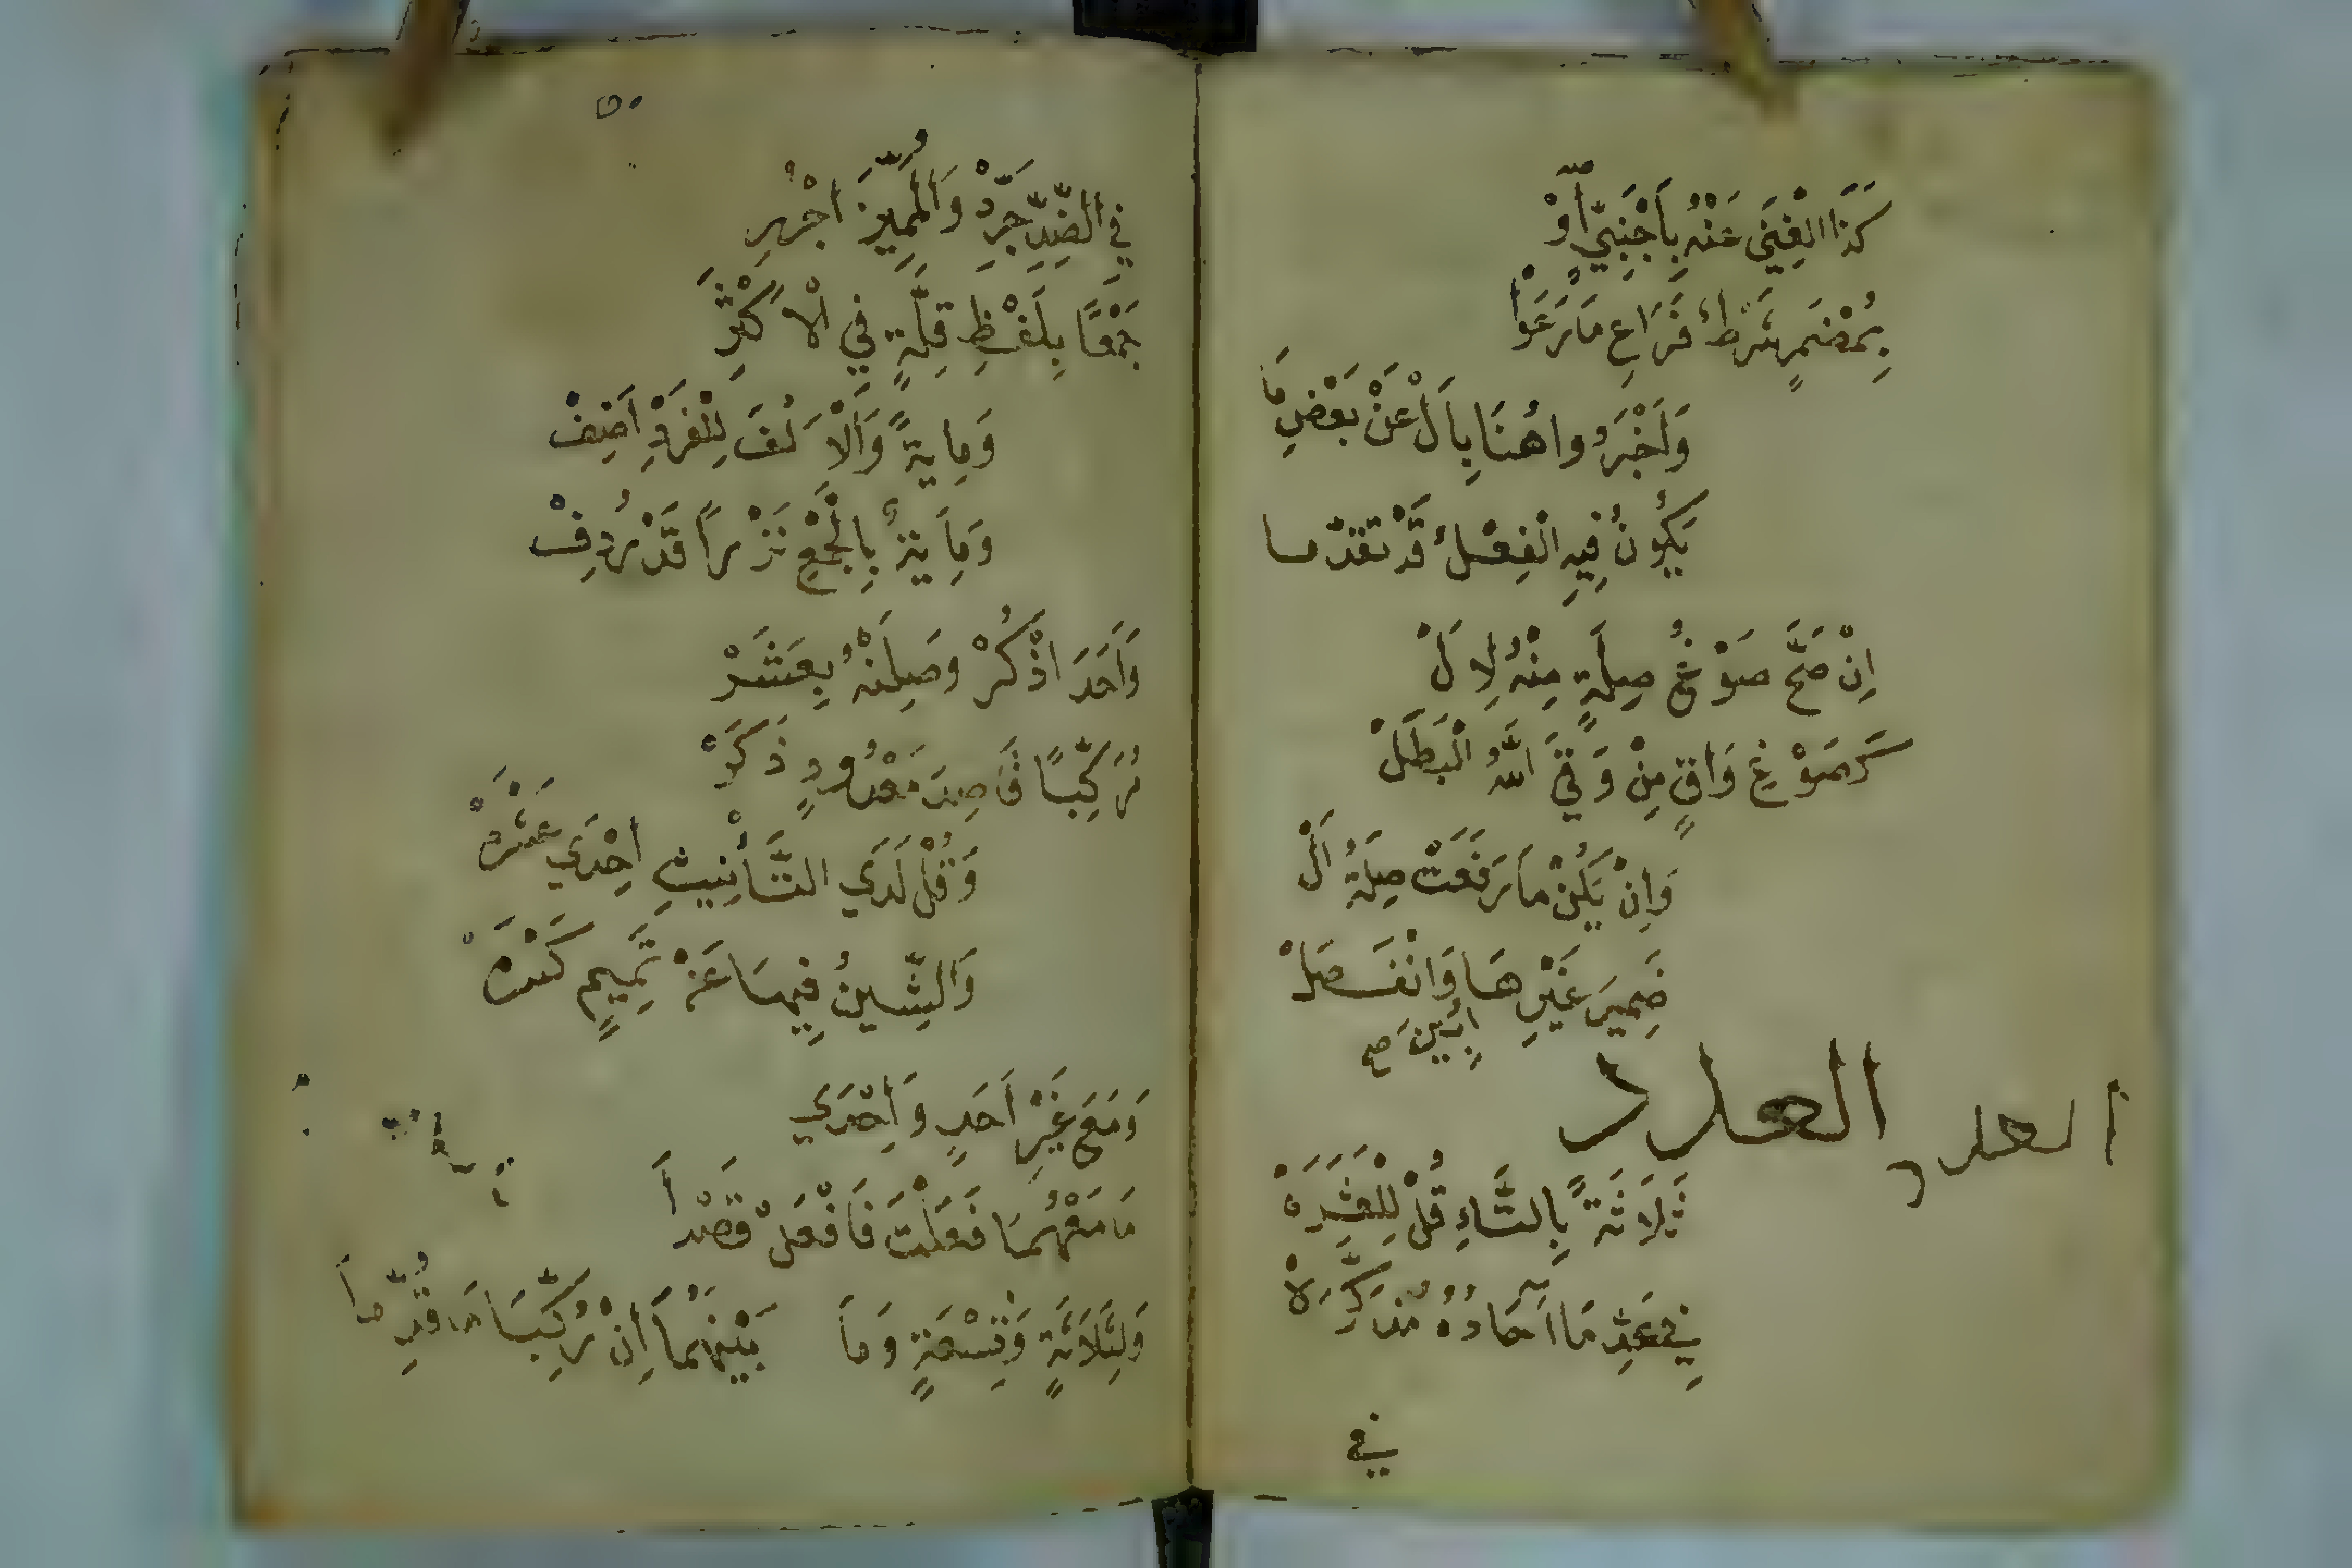 كَذَا الْغِنَى عَنْهُ بِأَجْنَبِيٍّ أَوْ
بِمُضْمَرٍ شَرْطٌ فَرَاعِ مَا رَعَوْا
وَأَخْبَرُوا هُنَا بِأَلْ عَنْ بَعْضِ مَا
يَكُونُ فِيهِ الْفِعْلُ قَدْ تَقَدَّمَا
اِنْ صَحَّ صَوْغُ صِلَةٍ مِنْهُ لِاَلْ
كَصَوْغِ وَاقٍ مِنْ وَقَى اللَّهُ الْبَطَلْ
وَاِنْ يَكُنْ مَا رَفَعَتْ صِلَةُ اَلْ
ضَمِيرَ غَيْرِهَا وَانْفَصَلْ
اُبِينَ صح
العدد
العدد
ثَلَاثَةً بِالتَّاءِ قُلْ لِلْعَشَرَهْ
فِي عَدِّ مَا آحَادُهُ مُذَكَّرَهْ
في
٥٠
فِي الضِّدِّ جَرِّدْ وَالْمُمَيِّزَ اجْرُرِ
جَمْعًا بِلَفْظِ قِلَّةٍ فِي الْاَكْثَرِ
وَمِايَةً وَالْاَلْفَ لِلْفَرْدِ اَضِفْ
وَمِايَةٌ بِالْجَمْعِ نَزْراً قَدْ رُدِفْ
وَاَحَدَ اذْكُرْ وَصِلَنْهُ بِعَشَرْ
مُرَكِّبًا قَاصِدَ مَعْدُودٍ ذَكَرْ
وَقُلْ لَدَي التَّأْنِيثِ اِحْدَي عَشْرَهْ
وَالشِّينُ فِيهَا عَنْ تَمِيمٍ كَسْرَهْ
وَمَعَ غَيْرِ اَحَدٍ وَاِحْدَي
مَا مَعْهُمَا فَعَلْتَ فَافْعَلْ قَصْداً
وَلِثَلَاثَةٍ وَتِسْعَةٍ وَمَا بَيْنَهُمَا اِنْ رُكِّبَا مَا قُدِّمَا